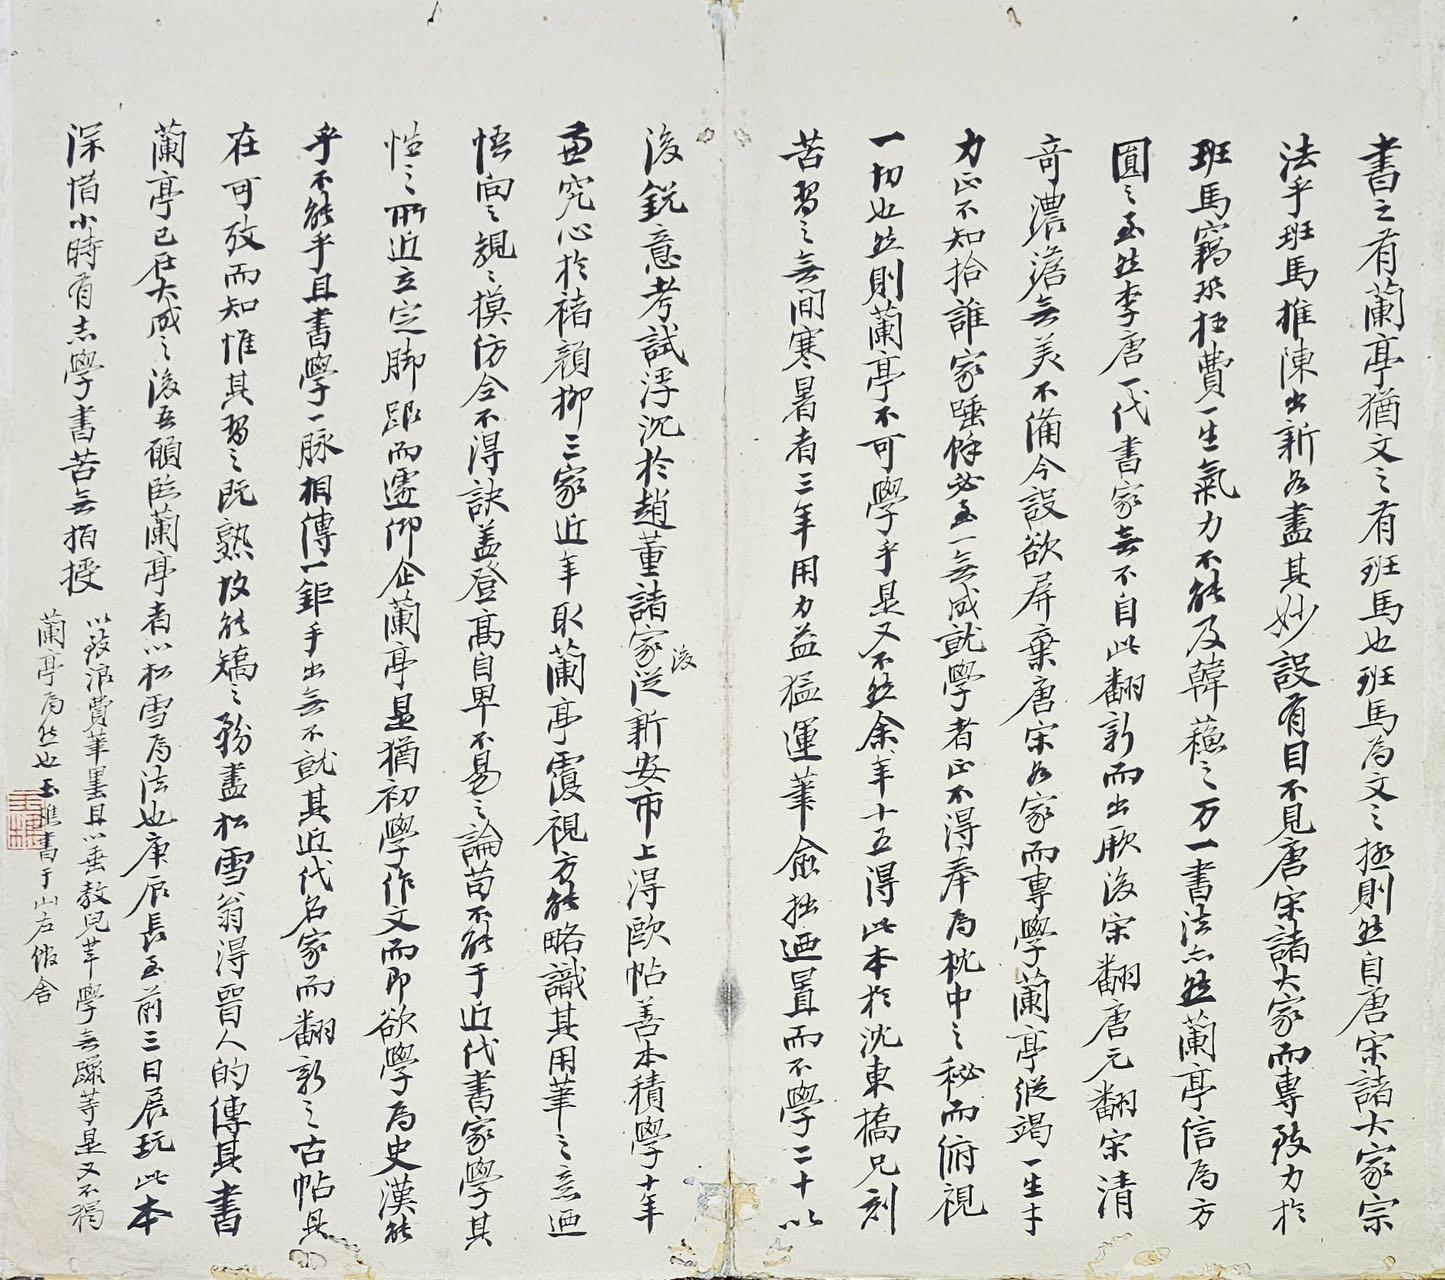 書之有蘭亭猶文之有班馬也班馬為文之極則然自唐宋諸大家宗
法乎班馬推陳出新各盡其妙設有目不見唐宋諸大家而專致力於
班馬竊恐枉費一生氣力不能及韓蘇之万一書法亦然蘭亭信為方
圓之至然李唐一代書家無不自此翻新而出厥後宋翻唐元翻宋清
奇濃澹無美不備今設欲屏棄唐宋各家而專學蘭亭縱竭一生才
力正不知拾誰家唾餘必至一無成就學者正不得奉為枕中之秘而俯視
一切也然則蘭亭不可學乎是又不然余年十五得此本於沈東橋兄刻
苦習之無間寒暑者三年用力益猛運筆愈拙迺置而不學二十以
後銳意考試浮沉於趙董諸家後從新安市上得歐帖善本積學十年
兼究心於褚顏柳三家近年取蘭亭覆視方能略識其用筆之意迺
悟向之規之摸仿全不得訣蓋登高自卑不易之論苟不能于近代書家學其
性之所近立定脚跟而遽仰企蘭亭是猶初學作文而即欲學為史漢能
乎不能乎且書學一脉相傳一鉅手出無不就其近代名家而翻新之古帖具
在可攷而知惟其習之既熟故能矯之務盡松雪翁得晉人的傳其書
蘭亭已在大成之後吾願臨蘭亭者以松雪為法也庚辰長至前三日展玩此本
深惜小時有志學書苦無指授
以致浪費筆墨且以垂教兒輩學無躐等是又不獨
蘭亭為然也玉樵書于山左館舍
玉樵